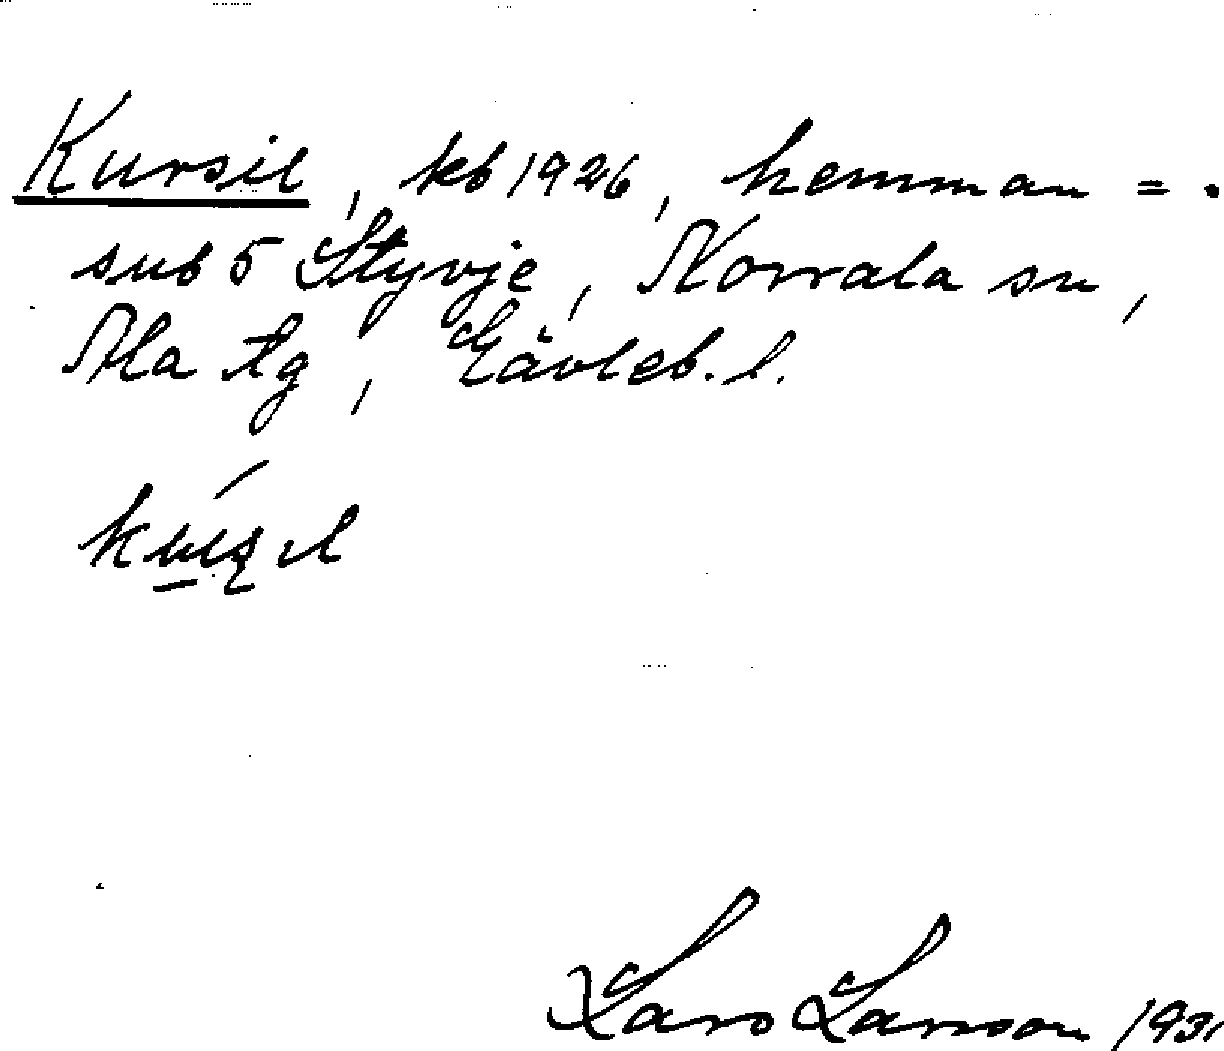 Kursil, kb 1926, hemman = .
sub 5 Styvje, Norrala sn,
Ala tg, Gävleb. l.
Lars Larsson 1931